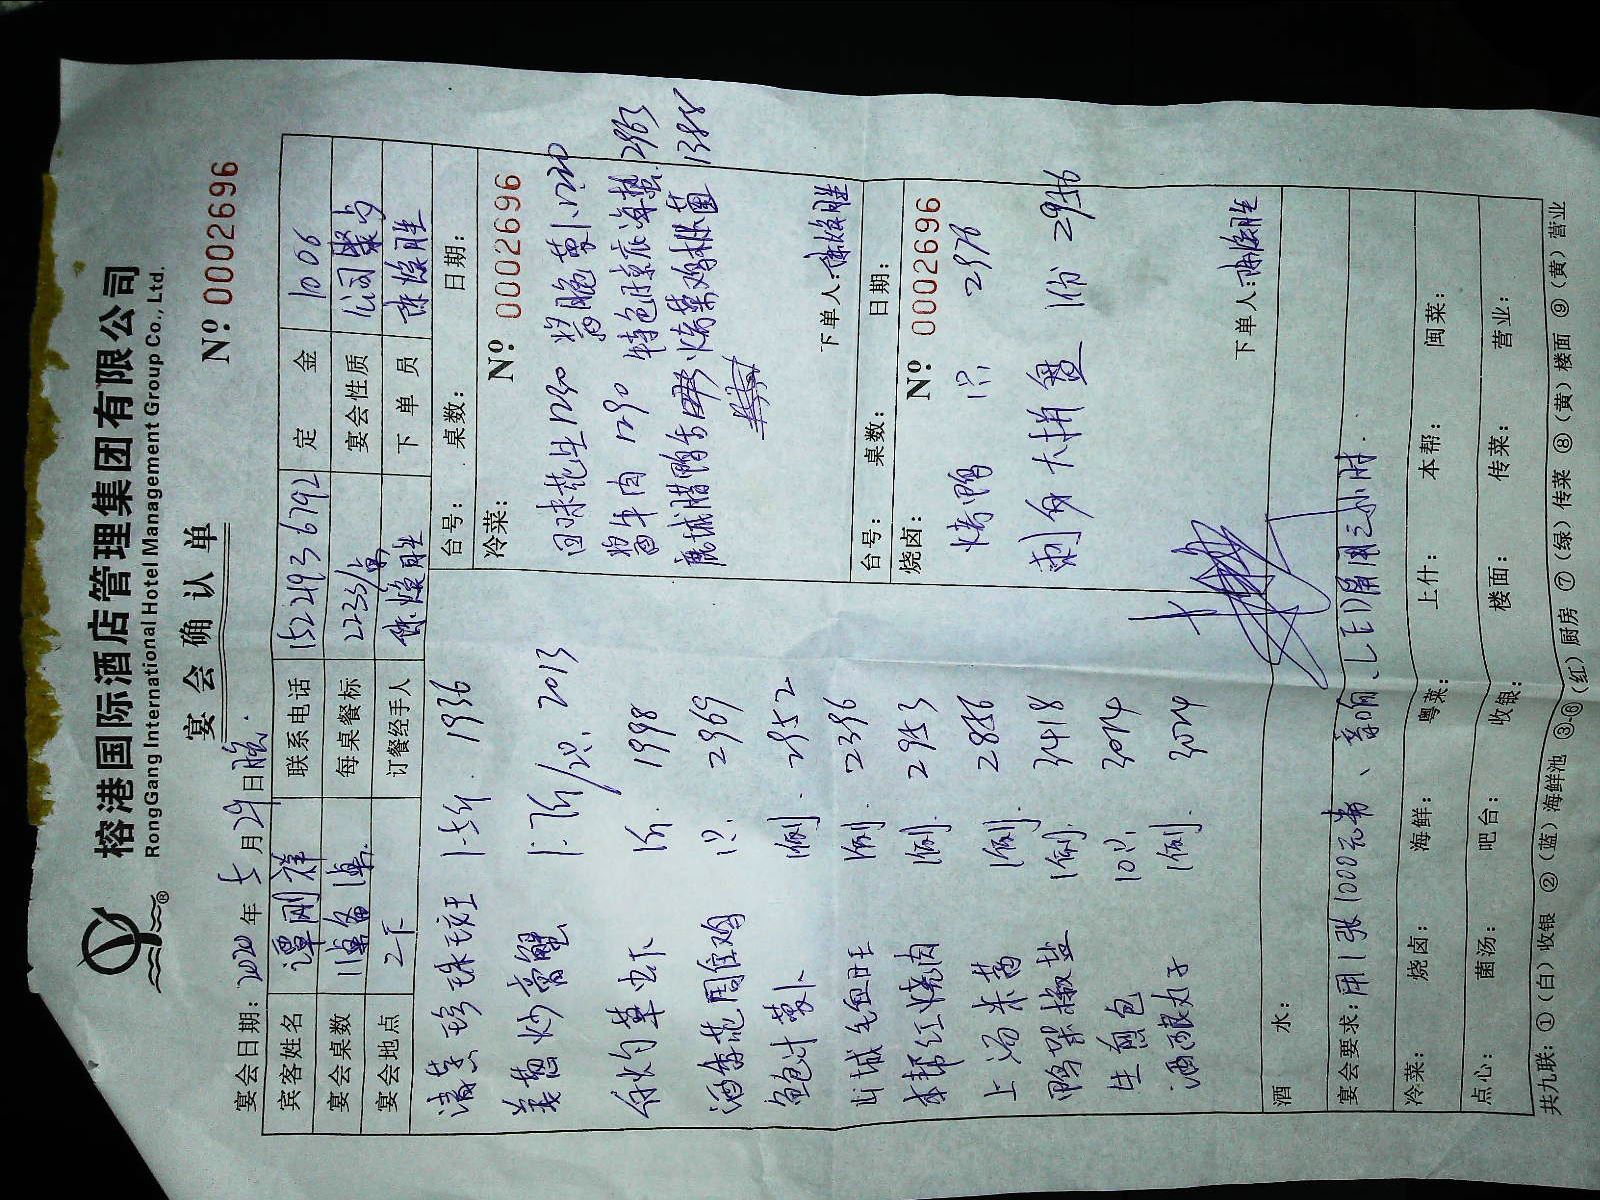 榕港国际酒店管理集团有限公司
RongGang International Hotel Management Group Co., Ltd.
®
宴会确认单
Nº 0002696
宴会日期: 2020 年 5 月 29 日晚.
宾客姓名 谭刚祥 联系电话 15224936792 定金 1006
宴会桌数 1桌备1桌 每桌餐标 2233/桌 宴会性质 公司聚会
宴会地点 2下 订餐经手人 陈焕胜 下单员 陈焕胜
清蒸珍珠斑王 1-5斤 1936
姜葱炒膏蟹 1.7斤/2只. 2013
白灼草虾 1斤. 1998
1只. 2969
鲍汁萝卜 1例. 2952
山城毛血旺 1例. 2396
本帮红烧肉 1例. 2953
上汤米苋 1例. 2886
鸭架椒盐 1例. 3418
生煎包 10只 3014
酒酿丸子 1例. 3024
台号: 桌数: 日期:
冷菜: Nº 0002696
回味花生 1230 酱脆萝卜 1220
酱牛肉 1290 特色陈醋海蜇 2963
鹿城腊鸭舌 1388
下单人: 陈焕胜
台号: 桌数: 日期:
烧卤: Nº 0002696
烤鸭 1只 2976
刺身大拼盘 1份 2956
下单人: 陈焕胜
酒水:
宴会要求: 用1张1000元券、音响、LED屏用三小时.
冷菜: 烧卤: 海鲜: 粤菜: 上什: 本帮: 闽菜:
点心: 菌汤: 吧台: 收银: 楼面: 传菜: 营业:
共九联: ①(白)收银 ②(蓝)海鲜池 ③-⑥(红)厨房 ⑦(绿)传菜 ⑧(黄)楼面 ⑨(黄)营业